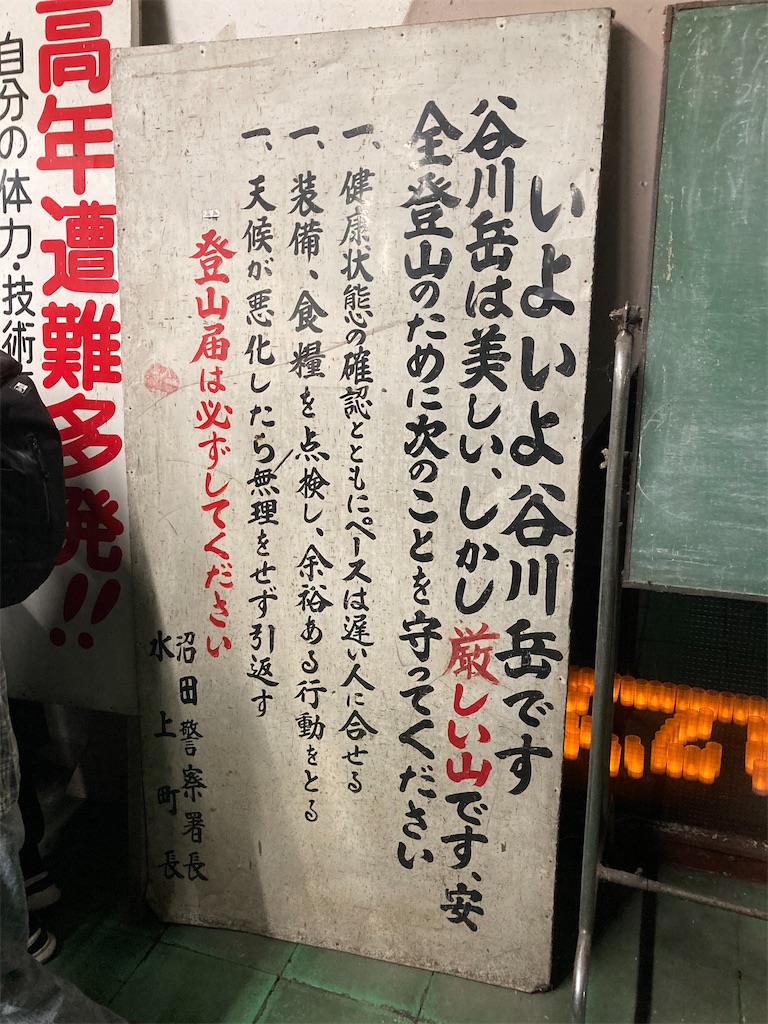 いよいよ谷川岳です
谷川岳は美しい、しかし厳しい山です、安
全登山のために次のことを守ってください
一、健康状態の確認とともにペースは遅い人に合せる
一、装備、食糧を点検し、余裕ある行動をとる
一、天候が悪化したら無理をせず引返す
登山届は必ずしてください
沼田警察署長
水上町長
高年遭難多発!!
自分の体力・技術